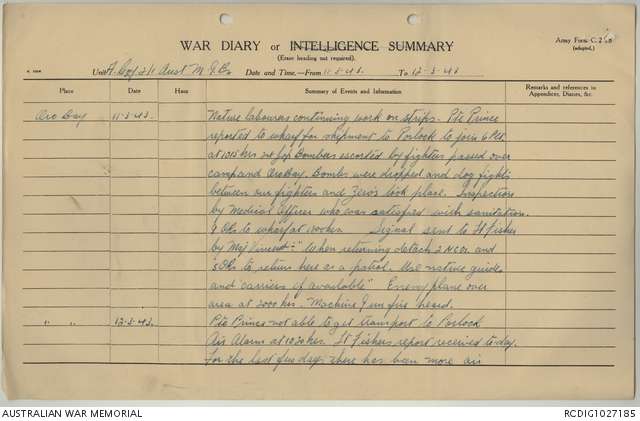 Army Form C. 2118
(adapted.)
WAR DIARY or INTELLIGENCE SUMMARY
(Erase heading not required).
Unit A Coy 2/1 Aust M.G. Bn Date and Time,—From 11-3-43. To 12-3-43
Place Date Hour Summary of Events and Information Remarks and references in Appendices, Diaries, &c.
Oro Bay 11-3-43. Native labourers continuing work on strips. Pte Prince
reported to wharf for shipment to Porlock to join 6 Plt.
at 1015 hrs 24 Jap Bombers escorted by fighters passed over
camp and Oro Bay. Bombs were dropped and dog fights
between our fighters and Zero's took place. Inspection
by Medical Officer who was satisfied with sanitation.
9 ORs to wharf at hrs. Signal sent to Lt Fisher
by Maj Vincent:- "When returning detach 2 NCOs. and
5 ORs to return here as a patrol. Use native guides
and carriers if available" Enemy plane over
area at 2000 hrs. Machine Gun fire heard.
" " 12-3-43. Pte Prince not able to get transport to Porlock
Air Alarm at 1030 hrs. Lt Fishers report received to-day.
For the last few days there has been more air
AUSTRALIAN WAR MEMORIAL RCDIG1027185